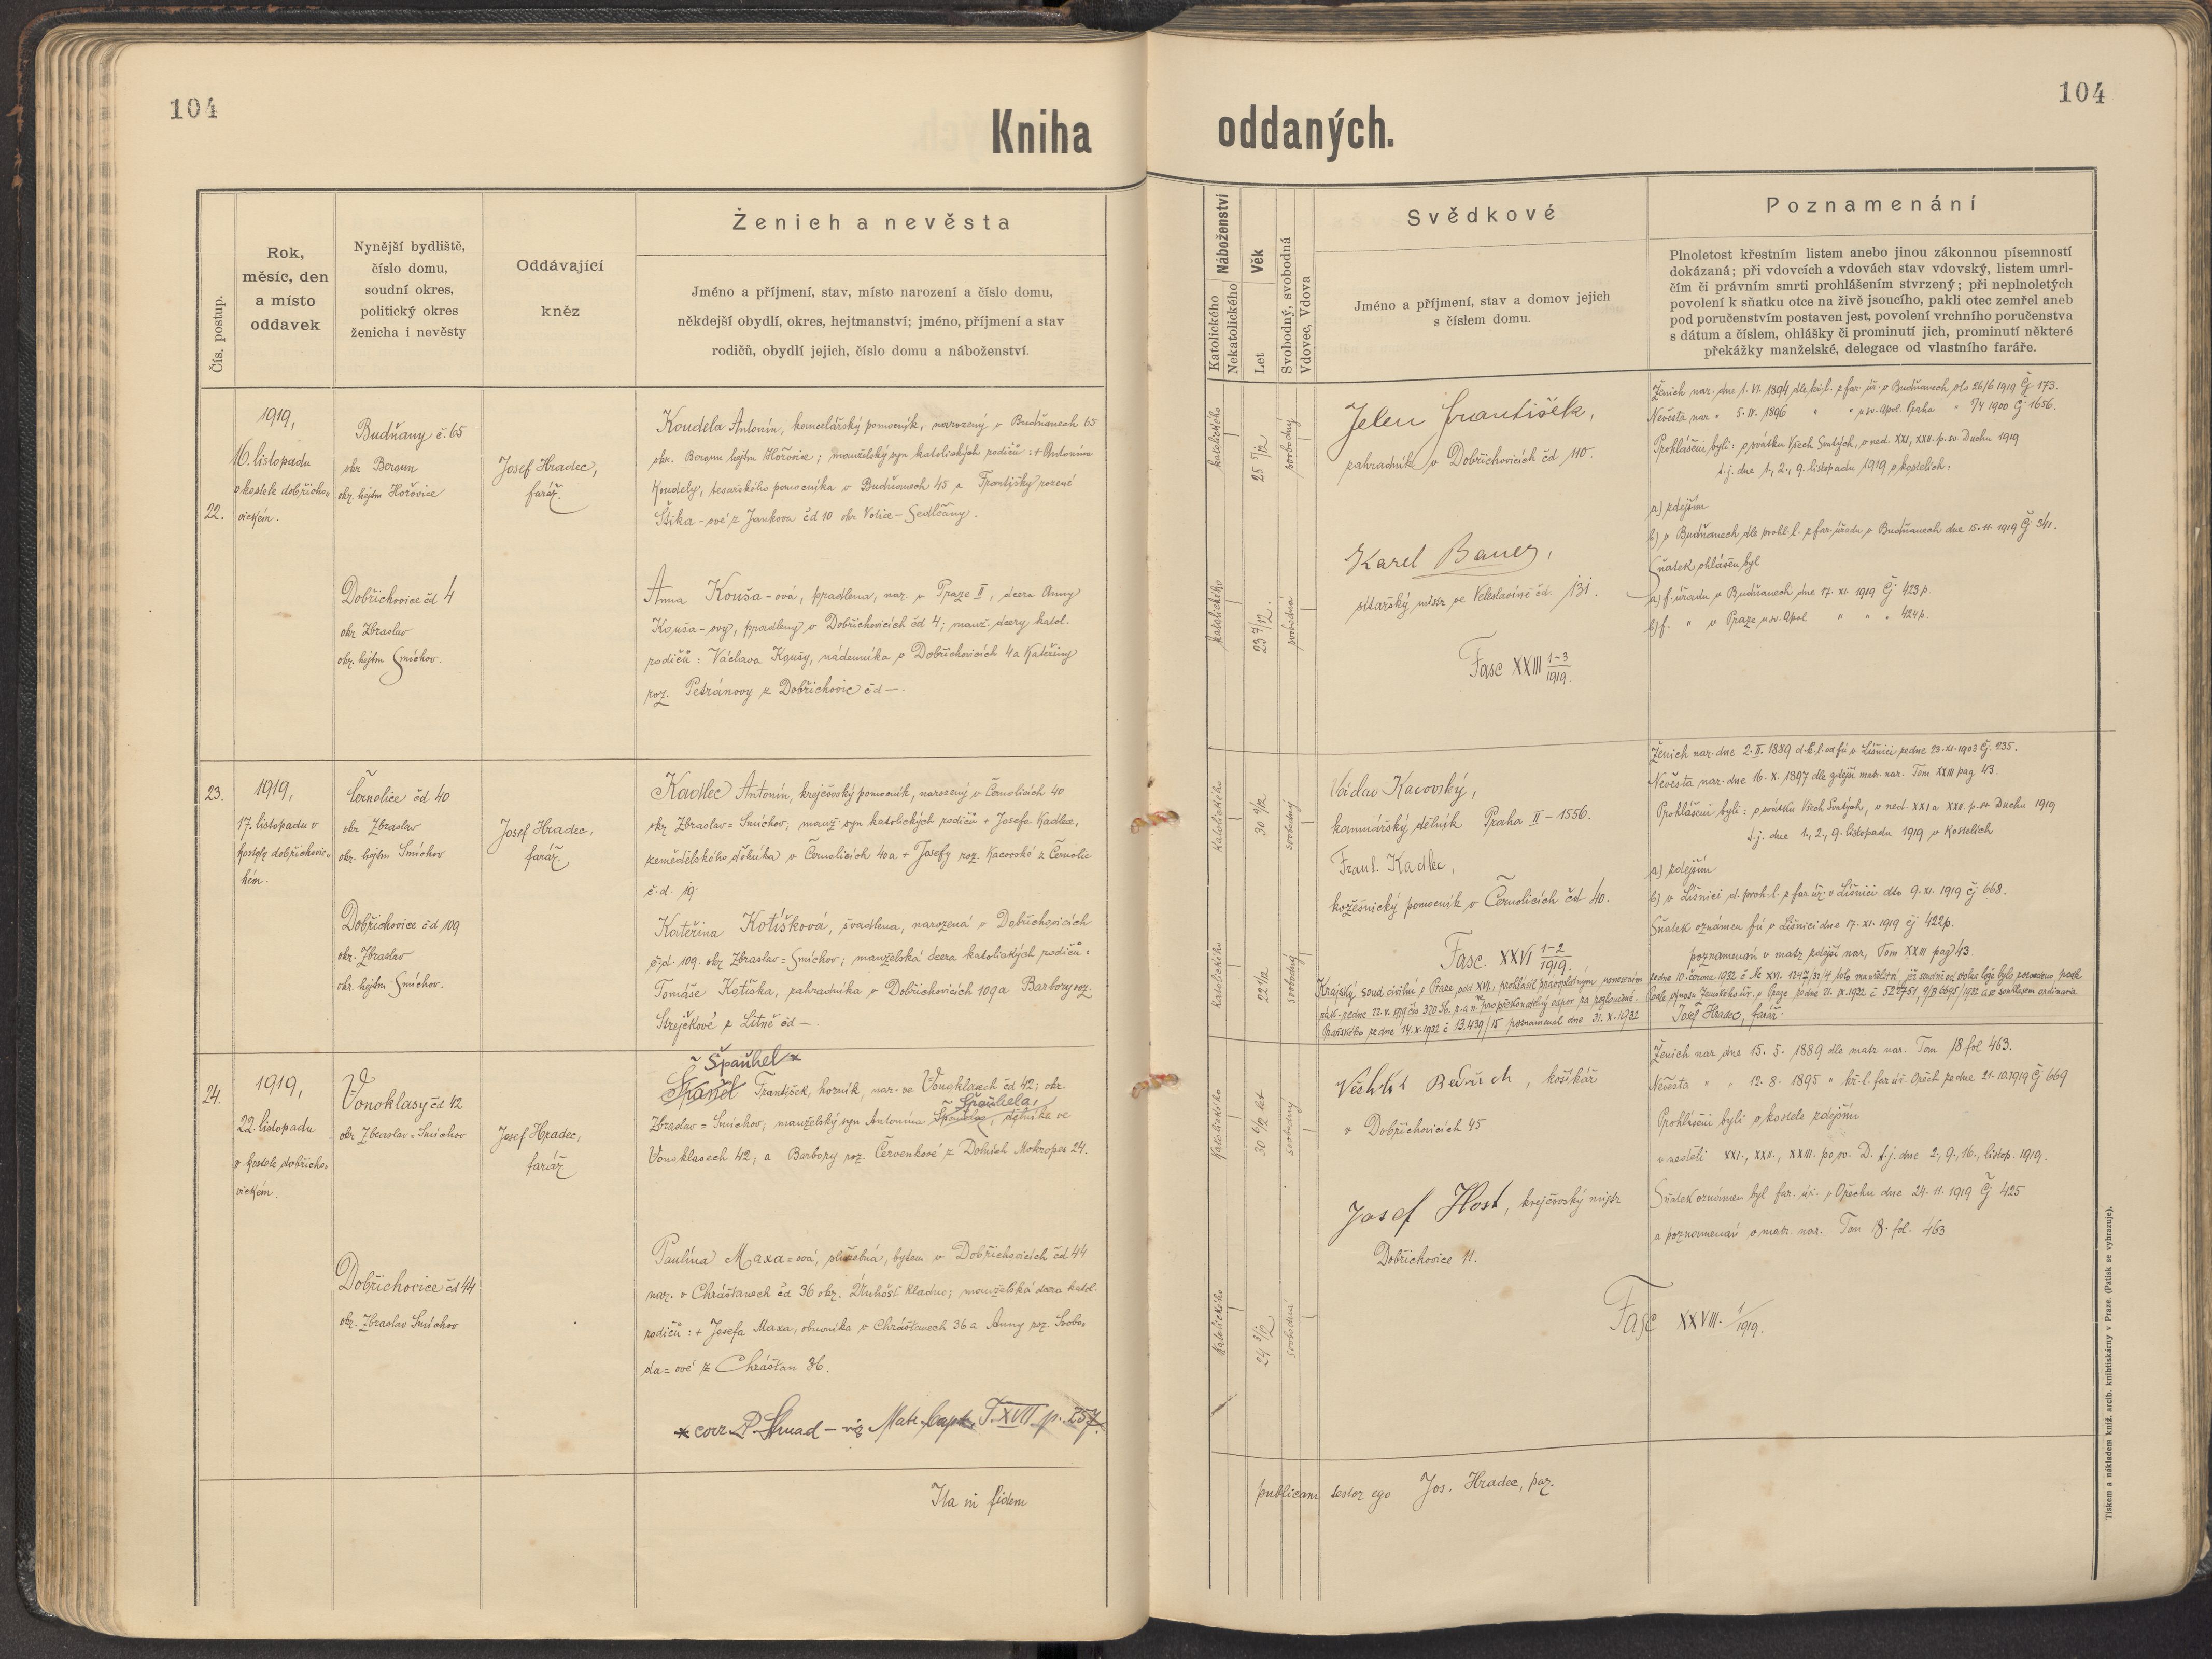 104
104
Kniha oddaných.
Čís. postup.
Rok,
měsíc, den
a místo
oddavek
Nynější bydliště,
číslo domu,
soudní okres,
politický okres
ženicha i nevěsty
Oddávající
kněz
Ženich a nevěsta
Jméno a příjmení, stav, místo narození a číslo domu,
někdejší obydlí, okres, hejtmanství; jméno, příjmení a stav
rodičů, obydlí jejich, číslo domu a náboženství.
Náboženství
Katolického
Nekatolického
Věk
Let
Svobodný, svobodná
Vdovec, Vdova
Svědkové
Jméno a příjmení, stav a domov jejich
s číslem domu.
Poznamenání
Plnoletost křestním listem anebo jinou zákonnou písemností
dokázaná; při vdovcích a vdovách stav vdovský, listem umrl-
čím či právním smrti prohlášením stvrzený; při neplnoletých
povolení k sňatku otce na živě jsoucího, pakli otec zemřel aneb
pod poručenstvím postaven jest, povolení vrchního poručenstva
s dátum a číslem, ohlášky či prominutí jich, prominutí některé
překážky manželské, delegace od vlastního faráře.
22.
1919,
16. listopadu
v kostele dobřicho-
vickém.
Budňany č. 65
okr. Beroun
okr. hejtm Hořovice
Josef Hradec,
farář.
Koudela Antonín, kancelářský pomocník, narozený v Budňanech 65
okr. Beroun hejtm Hořovice; manželský syn katolických rodičů: + Antonína
Koudely, tesařského pomocníka v Budňanech 45 a Františky rozené
Štika-ové z Jankova čd 10 okr Votice - Sedlčany.
Dobřichovice čd 4
okr Zbraslav
okr. hejtm Smíchov.
Anna Kouša-ová, pradlena, nar. v Praze II, dcera Anny
Kouša-ovy, pradleny v Dobřichovicích čd 4; manž. dcery katol.
rodičů: Václava Koušy, nádenníka v Dobřichovicích 4 a Kateřiny
roz. Petránovy z Dobřichovic čd —.
katolického
25 7/12
svobodný
katolického
23 7/12.
svobodná
Jelen František,
zahradník v Dobřichovicích čd 110.
Karel Bauer,
sítařský mistr ve Veleslavíně čd. 131.
Fasc XXIII 1-3/1919.
Ženich nar. dne 1. VI. 1894 dle kř. l. z far. úř. v Budňanech dto 26/6 1919 Čj 173.
Nevěsta nar " 5. IV. 1896 " " u sv. Apol. Praha " 7/4 1900 Čj 1656.
Prohlášeni byli: v svátku Všech Svatých, v ned. XXI, XXII. p. sv. Duchu 1919
t.j. dne 1., 2., 9. listopadu 1919 v kostelích:
a) zdejším
b) v Budňanech dle prohl. l. z far. úřadu v Budňanech dne 15. 11. 1919 Čj 341.
Sňatek ohlášen byl
a) f. úřadu v Budňanech dne 17. XI. 1919 Čj 423 p.
b) f. " v Praze u sv. Apol " " " 424 p.
23.
1919,
17. listopadu v
kostele dobřichovic-
kém.
Černolice čd 40
okr Zbraslav
okr. hejtm Smíchov
Josef Hradec,
farář
Kadlec Antonín, krejčovský pomocník, narozený v Černolicích 40
okr Zbraslav = Smíchov; manž syn katolických rodičů + Josefa Kadlece,
zemědělského dělníka v Černolicích 40 a + Josefy roz. Kacovské z Černolic
č.d. 19.
Dobřichovice čd 109
okr. Zbraslav
okr. hejtm Smíchov.
Kateřina Kotíšková, švadlena, narozená v Dobřichovicích
č.d. 109. okr Zbraslav = Smíchov; manželská dcera katolických rodičů:
Tomáše Kotíška, zahradníka v Dobřichovicích 109 a Barbory roz.
Strejčkové z Litně čd —.
katolického
30 9/12
svobodný
katolického
22 1/12
svobodný
Kacovský,
kominářský dělník Praha II - 1556.
Frant. Kadlec,
kožešnický pomocník v Černolicích čd 40.
Fasc. XXVI 1-2/1919.
Ženich nar. dne 2. II. 1889 d. k. l. od fú v Líšnici ze dne 23. XI. 1903 čj. 235.
Nevěsta nar. dne 16. X. 1897 dle zdejší matr. nar. Tom XXIII pag 43.
Prohlášeni byli: v svátku Všech Svatých, v ned. XXI a XXII. p. sv. Duchu 1919
t.j. dne 1., 2., 9. listopadu 1919 v kostelích
a) zdejším
b) v Líšnici d. proh. l. z far úř. v Líšnici dto 9. XI. 1919 čj 668.
Sňatek oznámen fú v Líšnici dne 17. XI. 1919 čj 422 p.
poznamenán v matr zdejší nar, Tom XXIII pag 43.
Krajský soud civilní v Praze, odd XVI., prohlásil pravoplatným usnesením ze dne 10. června 1932 č Nc XVI. 1247/32/4, toto manželství, jež soudně od stolu a lože bylo rozvedeno, podle
zák. ze dne 22. V. 1919 čís 320 Sb. z. a n. pro nepřekonatelný odpor za rozloučené. Podle výnosu Zemského úř. v Praze ze dne 21. IX. 1932
Pražského ze dne 14. X. 1932 č 13.439/15 poznamenal dne 31. X. 1932 Josef Hradec, farář.
24.
1919,
22. listopadu
v kostele dobřicho-
vickém.
Vonoklasy čd 42
okr Zbraslav = Smíchov
Josef Hradec,
farář
Španhel *
Španěl František, horník, nar. ve Vonoklasech čd 42; okr.
Španhela,
Zbraslav = Smíchov; manželský syn Antonína Španěla, dělníka ve
Vonoklasech 42; a Barbory roz. Červenkové z Dolních Mokropes 24.
Dobřichovice čd 44
okr. Zbraslav Smíchov
Paulina Maxa=ová, služebná, bytem v Dobřichovicích čd 44
nar. v Chrášťanech čd 36 okr. Unhošť Kladno; manželská dcera katol.
rodičů: + Josefa Maxa, obuvníka v Chrášťanech 36 a Anny roz. Svobo-
da=ové z Chrášťan 36.
* corr. P. Šmad - viz Matr. bapt. T. XVII p. 257.
katolického
30 6/12 let
svobodný
katolického
24 3/12
svobodná
Bedřich, košíkář
v Dobřichovicích 45
Josef Host, krejčovský mistr
Dobřichovice 11.
Fasc XXVIII. 1/1919.
Ženich nar dne 15. 5. 1889 dle matr nar. Tom 18 fol 463.
Nevěsta " " 12. 8. 1895 " kř. l. far úř. Ořech ze dne 21. 10. 1919 Čj 669
Prohlášeni byli v kostele zdejším
v neděli XXI., XXII., XXIII. po sv. D. t.j. dne 2., 9., 16., listop. 1919.
Sňatek oznámen byl far. úř. v Ořechu dne 24. 11. 1919 Čj 425
a poznamenán v matr. nar. Tom 18. fol. 463
Ita in fidem publicam testor ego Jos. Hradec, par.
Tiskem a nákladem kníž. arcib. knihtiskárny v Praze. (Patisk se vyhrazuje).